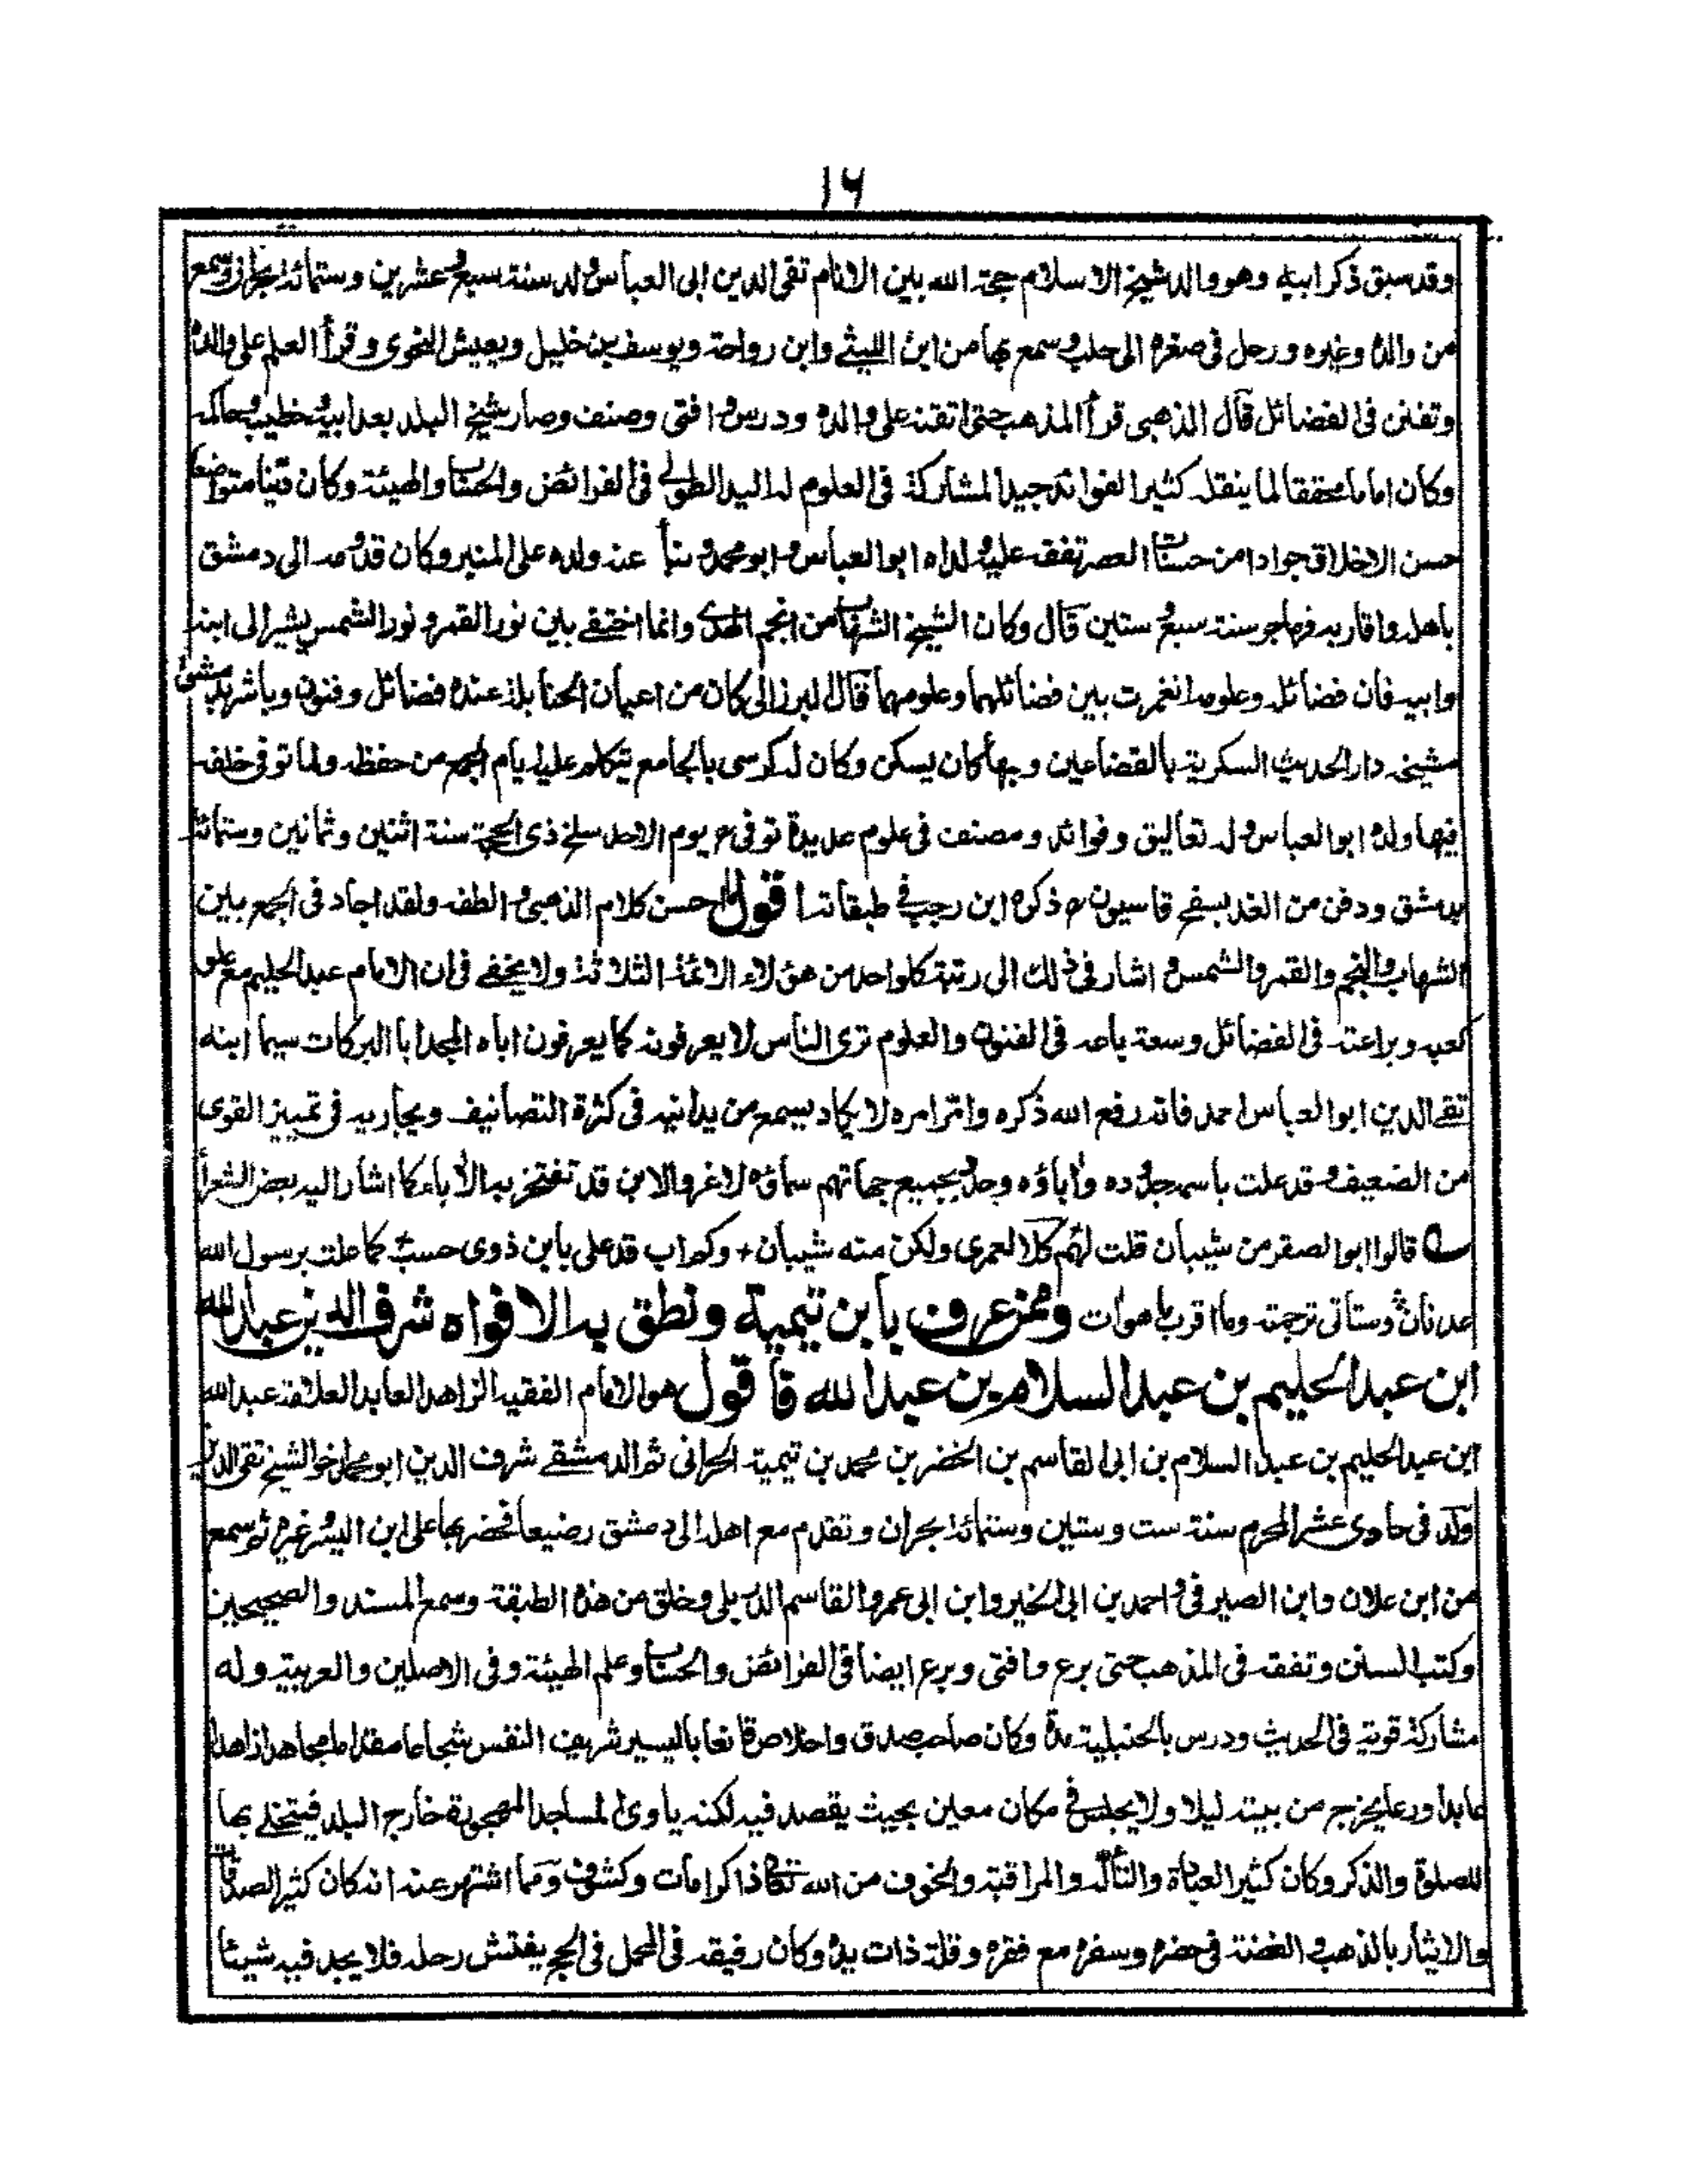 ١٦
وقد سبق ذكر ابيه وهو والد شيخ الاسلام حجة الله بين الانام تقى الدين ابى العباس ولد سنة سبع وعشرين وستمائة بحران وسمع
من والده وغيره ورحل فى صغره الى حلب وسمع بها من ابن الليثے وابن رواحة ويوسف بن خليل ويعيش النحوى وقرأ العلم على والده
وتفنن فى الفضائل قال الذهبى قرأ المذهب حتى اتقنه على والده ودرس وافتى وصنف وصار شيخ البلد بعد ابيه وخطيبه وحاكمه
وكان اماما محققا لما ينقله كثير الفوائد جيد المشاركة فى العلوم له اليد الطولے فى الفرائض والحساب والهيئة وكان دينا متواضعا
حسن الاخلاق جوادا من حسنات العصر تفقه عليه ولداه ابو العباس وابو محمد و عنه ولده على المنبر وكان قدومه الى دمشق
باهله واقاربه مهاجرا سنة سبع وستين قال وكان الشيخ الشهاب من انجم الهدى وانما اختفے بين نور القمر ونور الشمس يشير الى ابنه
وابيه فان فضائله وعلومه انغمرت بين فضائلهما وعلومهما قال البرزالى كان من اعيان الحنابلة عنده فضائل وفنون وباشر بدمشق
مشيخة دار الحديث السكرية بالقصاعين وبها كان يسكن وكان له كرسى بالجامع يتكلم عليه ايام الجمع من حفظه ولما توفى خلفه
فيها ولده ابو العباس وله تعاليق وفوائد ومصنف فى علوم عديدة توفى يوم الاحد سلخ ذى الحجة سنة اثنين وثمانين وستمائة
بدمشق ودفن من الغد بسفح قاسيون ذكره ابن رجب فے طبقاته اقول ما احسن كلام الذهبى والطفه ولقد اجاد فى الجمع بين
الشهاب والنجم والقمر والشمس واشار فى ذلك الى رتبة كل واحد من هؤلاء الائمة الثلاثة ولا يخفے فى ان الامام عبد الحليم مع علو
كعبه وبراعته فى الفضائل وسعة باعه فى الفنون والعلوم ترى الناس لا يعرفونه كما يعرفون اباه المجد ابا البركات سيما ابنه
تقے الدين ابو العباس احمد فانه رفع الله ذكره واتم امره لا يكاد يسمع من يدانيه فى كثرة التصانيف ويجاريه فى تمييز القوى
من الضعيف وقد علت باسمه جدوده وأباؤه وحل بجميع جهاتهم سماؤه لا غرو الابن قد تفتخر به الأباء كما اشار اليه بعض الشعرأ
قالوا ابو الصقر من شيبان قلت لهم كلا لعمرى ولكن منه شيبان + وكم اب قد على بابن ذوى حسب كما علت برسول الله
عدنان وستاتى ترجمته وما اقرب ما هوات وممن عرف بابن تيمية ونطق به الافواه شرف الدين عبد الله
ابن عبد الحليم بن عبد السلام بن عبد الله فاقول هو الامام الفقيه الزاهد العابد العلامة عبد الله
ابن عبد الحليم بن عبد السلام بن ابى القاسم بن الخضر بن محمد بن تيمية الحرانى ثم الدمشقے شرف الدين ابو محمد اخو الشيخ تقى الدين
ولد فى حادى عشر المحرم سنة ست وستين وستمائة بحران وتقدم مع اهله الى دمشق رضيعا فحضر بها على ابن اليسر وغيره ثم سمع
من ابن علان وابن الصيرفى واحمد بن ابى الخير وابن ابى عمر والقاسم الاربلى وخلق من هذه الطبقة وسمع المسند والصحيحين
وكتب السنن وتفقه فى المذهب حتى برع وافتى وبرع ايضا فى الفرائض والحساب وعلم الهيئة وفى الاصلين والعربية وله
مشاركة قوية فى الحديث ودرس بالحنبلية مدة وكان صاحب صدق واخلاص قانعا باليسير شريف النفس شجاعا مقداما مجاهدا زاهدا
عابدا ورعا يخرج من بيته ليلا ولا يجلس فے مكان معين بحيث يقصد فيه لكنه ياوى المساجد المهجورة خارج البلد فيتخلے بها
للصلوة والذكر وكان كثير العبادة والتأله والمراقبة والخوف من الله تعالى ذا كرامات وكشوف ومما اشتهر عنه انه كان كثير الصدقات
والايثار بالذهب والفضة فى حضره وسفره مع فقره وقلة ذات يده وكان رفيقه فى المحمل فى الحج يفتش رحله فلا يجد فيه شيئا